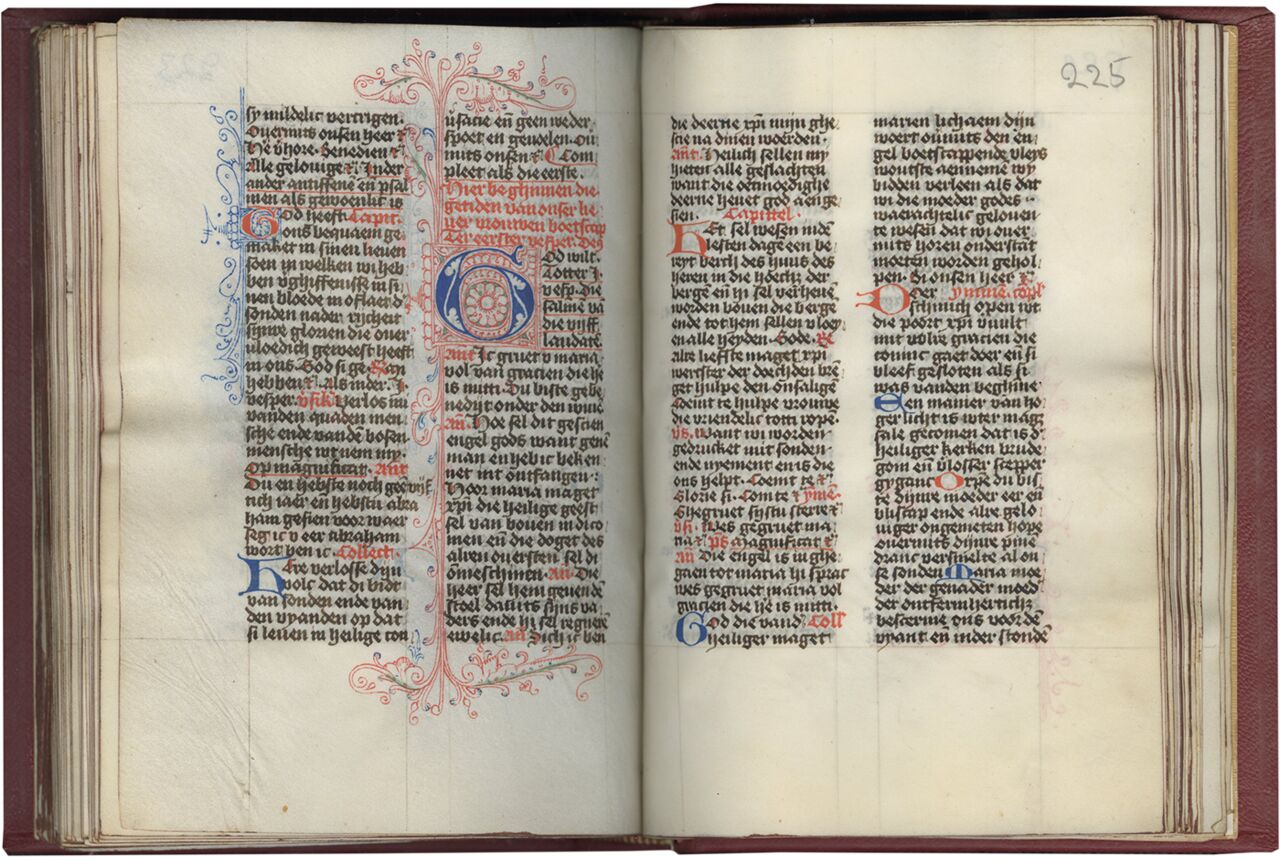 sy mildelic vertrigen.
Ouermits onsen heer
He vhore. benedien
Alle gelouige. Inder
ander antiffene en psal
men als gewoenlic is
God heeft Capit.
ons bequaem ge
maket in sinen lieuen
soen in welken wi heb
ben vghiffenisse in si
nen bloede in oflaet d
sonden nader rijcheit
sijnre glorien die ouer
vloedich geweest heeft
in ons. God si ge.
hebben. Als inder. I.
vesper. Verlos mi
vanden quaden men
sche ende vanden bosen
mensche wt nem my.
Op magnificat. Ant
Du en hebste noch gee vijf
tich iaer en hebstu abra
ham gesien voor waer
seg ic v eer abraham
wort ben ic. Collect.
Here verlosse dijn
volc dat di bidt
van sonden ende van
den vyanden op dat
si leuen in heilige con
usacie en geen weder
spoet en geuoelen. Ou
mits onsen. Com
pleet als die eerste.
Hier beghinnen die
getiden van onser lie
uer vrouwen boetscap
Ten eerster vesper. Deus
God wilt.
Totter I.
vesp. Die
salme van
die vijff
laudate
Ant Ic gruet v maria
vol van gracien die he
is mitti. Du biste gebe
nedijt onder den wiue
An. Hoe sel dit gescien
engel gods want genen
man en heb ic beken
net int ontfangen.
Hoor maria maget
xpi die heilige geest
sel van bouen in dico
men en die doget des
alren ouersten sel di
omeschinen. An. Die
heer sel hem geuen den
stoel dauits sijns va
ders ende hi sel regneren
ewelic. An. Sich ic ben
die deerne xpi mijn ghe
scie na dinen woerden.
Ant. Heilich sellen my
hieten alle geslachten
want die oetmoedighe
deerne heuet god aenge
sien. Capittel.
Het sel wesen inden
lesten dage een be
reyt berch des huus des
heren in die hoecht der
bergen en hi sel verheuen
worden bouen die berge
ende tot hem sellen vloey
en alle heyden. Gode.
Alre liefste maget xpi
wercster der doechden bren
ger hulpe den onsaligen
Coemt te hulpe vrouwe
die vriendelic totti rope.
Vs. Want wi worden
gedrucket mit sonden
ende nyement en is die
ons helpt. Coemt te
Glorie si. Com te ymne.
Ghegruet systu sterre
vs. Wes gegruet ma
ria. ps Magnificat
An Die engel is in ghe
gaen tot maria hi sprac
wes gegruet maria vol
gracien die he is mitti.
God die vand Coll
heiliger maget
marien lichaem dijn
woert ouermits den en
gel boetscappende vleys
woutste aennemen wy
bidden verleen als dat
wi die moeder godes
waerachtelic gelouen
te wesen dat wi ouer
mits horen onderstant
moeten worden gehol
pen. Bi onsen heer
Der ymnen. compl
schinich open wt
die poort xpi vuult
mit volre gracien die
coninc gaet doer en si
bleef gesloten als si
was vanden beghinne
Een manier van ho
gerlicht is wter magz
sale gecomen dat is der
heiliger kerken brude
gom en verlosser stepper
gygant Orpe du bis
te dijnre moeder eer en
bliscap ende alre gelo
uiger ongemeten hope
ouermits dijnre pine
dranc versmelte al on
se sonden Maria moe
der der genaden moed
der ontfermherticheit
bescerme ons voor den
vyant en in der stonden
225